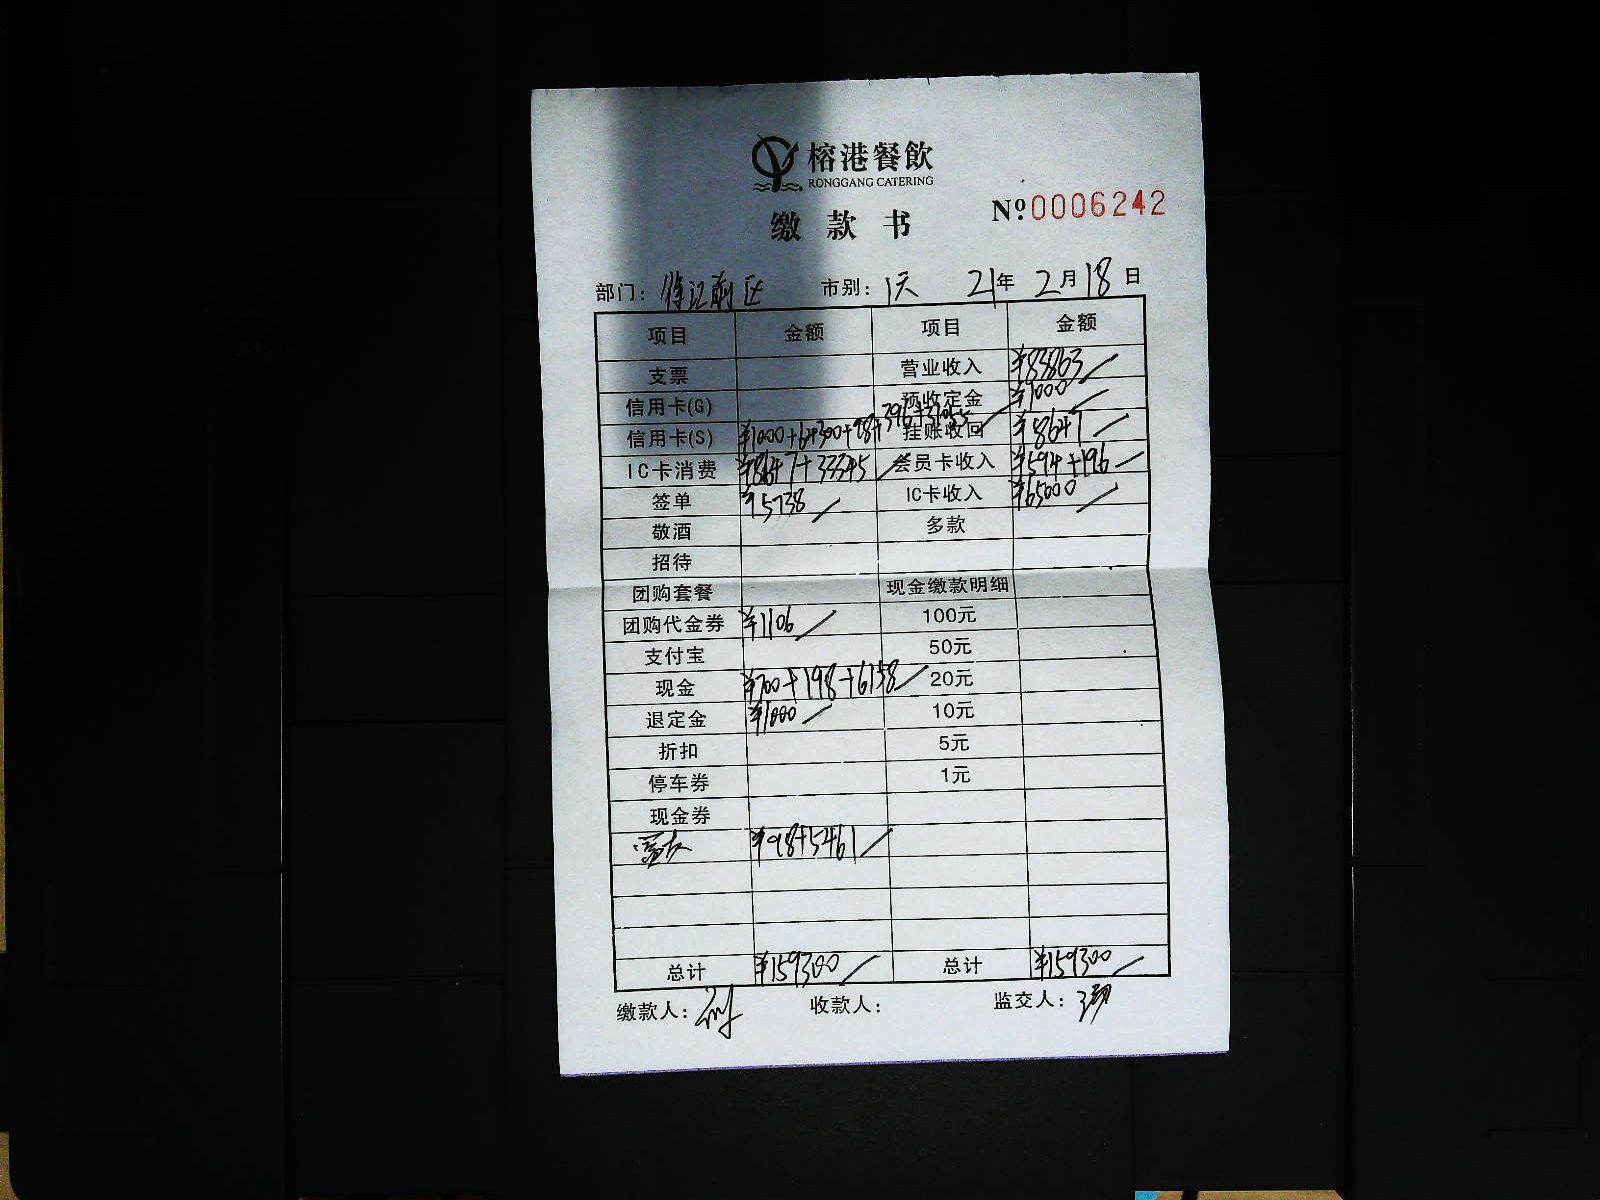 榕港餐飲
RONGGANG CATERING
缴款书
Nº0006242
部门： 市别：1天 21年2月18日
项目 金额 项目 金额
支票 营业收入 ¥83863
信用卡(G) 预收定金 ¥1000
信用卡(S) ¥1000+64300+98+396+31055 挂账收回 ¥8647
IC卡消费 ¥8647+33345 会员卡收入 ¥594+196
签单 ¥5738 IC卡收入 ¥65000
敬酒 多款
招待
团购套餐 现金缴款明细
团购代金券 ¥1106 100元
支付宝 50元
现金 ¥700+198+6158 20元
退定金 ¥1000 10元
折扣 5元
停车券 1元
现金券
¥98+5461
总计 ¥159300 总计 ¥159300
缴款人： 收款人： 监交人：